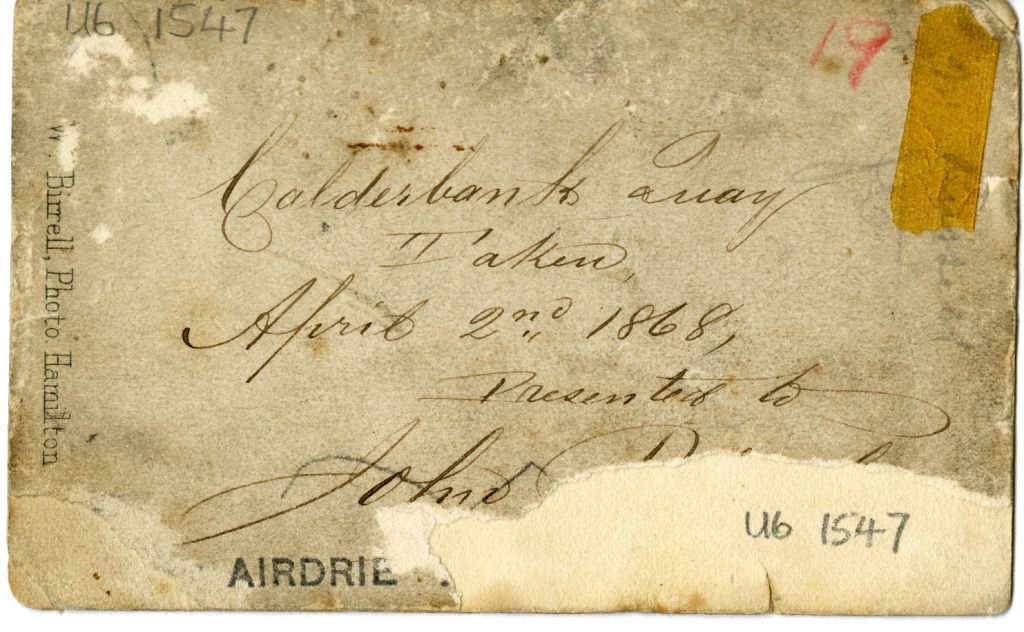 U6 1547
19
W. Birrell, Photo Hamilton
Calderbank Quay
Taken,
April 2nd 1868,
Presented to
John
U6 1547
AIRDRIE